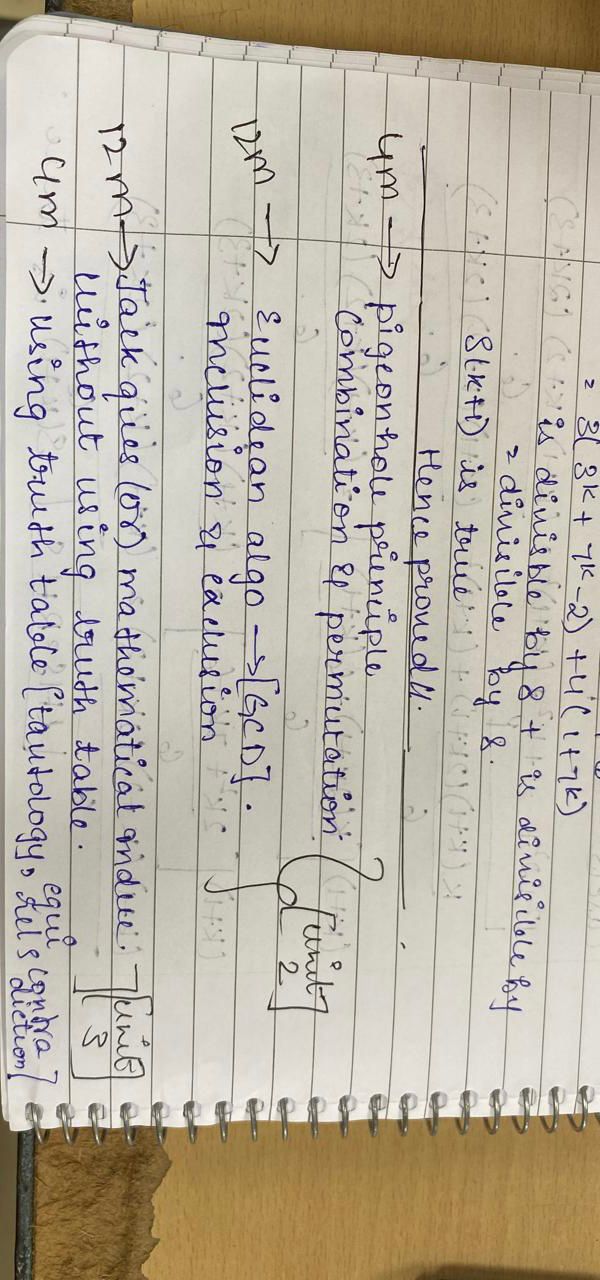 = 3(3k + 7k - 2) + 4(1 + 7k)
is divisible by 8 + is divisible by
= divisible by 8.
S(k+1) is true
Hence proved//.
4m → pigeonhole principle
combination & permutation
12m → Euclidean algo → [GCD].
inclusion & exclusion
[unit 2]
12m → (or) mathematical induc.
without using truth table.
[unit 3]
4m → using truth table [tautology, equi contra
diction]